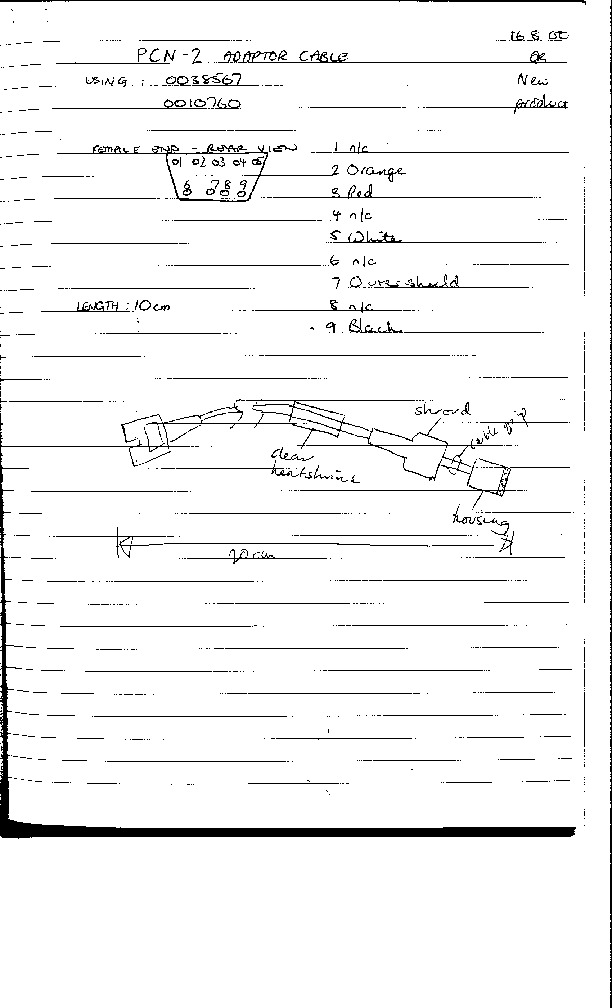 16 8 00
PCN-2 ADAPTOR CABLE
OR
USING : 0038567
New
0010760
product
FEMALE END - REAR VIEW
1 n/c
01 02 03 04 05
2 Orange
6 7 8 9
3 Red
4 n/c
5 White
6 n/c
7 Outer shield
LENGTH : 10cm
8 n/c
9 Black
shroud
cable grip
clear
heatshrink
housing